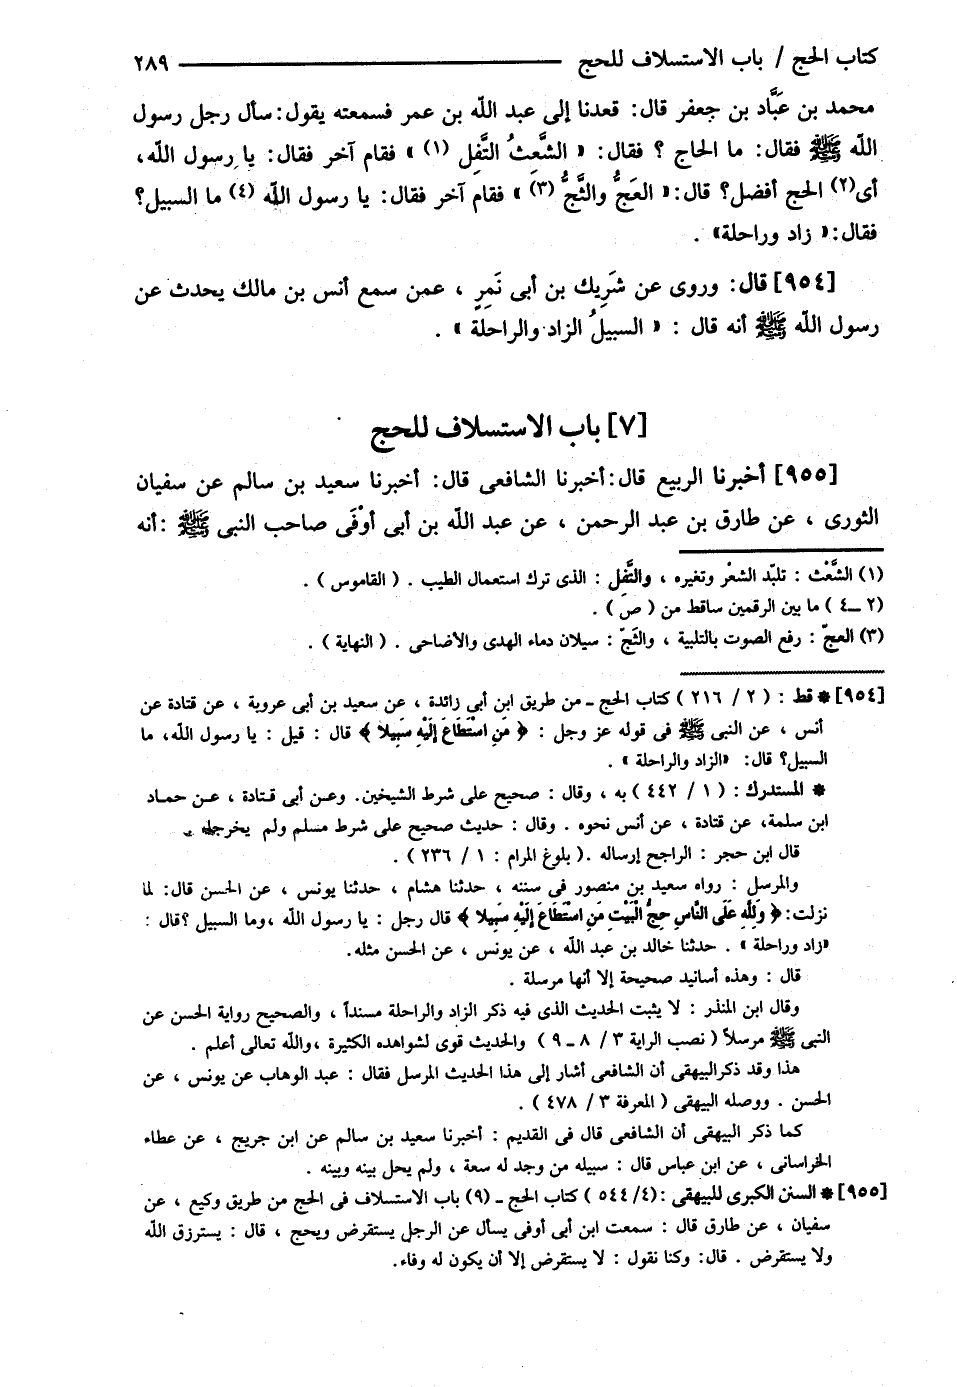 كتاب الحج / باب الاستسلاف للحج ٢٨٩
محمد بن عَبَّاد بن جعفر قال: قعدنا إلى عبد الله بن عمر فسمعته يقول: سأل رجل رسول
الله ﷺ فقال: ما الحاج ؟ فقال: « الشَّعِثُ التَّفِل (١) » فقام آخر فقال: يا رسول الله،
أى(٢) الحج أفضل؟ قال: « العَجُّ والثَّجُّ (٣) » فقام آخر فقال: يا رسول الله (٤) ما السبيل؟
فقال: « زاد وراحلة» .
[٩٥٤] قال: وروى عن شَرِيك بن أبى نَمِرٍ ، عمن سمع أنس بن مالك يحدث عن
رسول الله ﷺ أنه قال : « السبيلُ الزاد والراحلة » .
[٧] باب الاستسلاف للحج
[٩٥٥] أخبرنا الربيع قال: أخبرنا الشافعى قال: أخبرنا سعيد بن سالم عن سفيان
الثورى ، عن طارق بن عبد الرحمن ، عن عبد الله بن أبى أوْفَى صاحب النبى ﷺ : أنه
(١) الشَّعْث : تلبّد الشعْر وتغيره ، والتَّفِل : الذى ترك استعمال الطيب . ( القاموس ) .
(٢ ــ ٤ ) ما بين الرقمين ساقط من ( ص ) .
(٣) العجّ : رفع الصوت بالتلبية ، والثَجّ : سيلان دماء الهدى والأضاحى . ( النهاية ) .
[٩٥٤] * قط : ( ٢ / ٢١٦ ) كتاب الحج ــ من طريق ابن أبي زائدة ، عن سعيد بن أبى عروبة ، عن قتادة عن
أنس ، عن النبى ﷺ فى قوله عز وجل : ﴿ مَنِ اسْتَطَاعَ إِلَيْهِ سَبِيلاً ﴾ قال : قيل : يا رسول الله، ما
السبيل؟ قال: «الزاد والراحلة » .
* المستدرك : ( ١ / ٤٤٢ ) به ، وقال : صحيح على شرط الشيخين. وعن أبى قتادة ، عن حماد
ابن سلمة، عن قتادة ، عن أنس نحوه . وقال : حديث صحيح على شرط مسلم ولم يخرجاه .
قال ابن حجر : الراجح إرساله .( بلوغ المرام : ١ / ٢٣٦ ) .
والمرسل : رواه سعيد بن منصور فى سننه ، حدثنا هشام ، حدثنا يونس ، عن الحسن قال: لما
نزلت: ﴿ وَلِلَّهِ عَلَى النَّاسِ حِجُّ الْبَيْتِ مَنِ اسْتَطَاعَ إِلَيْهِ سَبِيلا ﴾ قال رجل : يا رسول الله ،وما السبيل ؟قال :
«زاد وراحلة » . حدثنا خالد بن عبد الله ، عن يونس ، عن الحسن مثله.
قال : وهذه أسانيد صحيحة إلا أنها مرسلة .
وقال ابن المنذر : لا يثبت الحديث الذى فيه ذكر الزاد والراحلة مسنداً ، والصحيح رواية الحسن عن
النبى ﷺ مرسلاً ( نصب الراية ٣ / ٨ ــ ٩ ) والحديث قوى لشواهده الكثيرة ،والله تعالى أعلم .
هذا وقد ذكرالبيهقى أن الشافعى أشار إلى هذا الحديث المرسل فقال : عبد الوهاب عن يونس ، عن
الحسن . ووصله البيهقى ( المعرفة ٣ / ٤٧٨ ) .
كما ذكر البيهقى أن الشافعى قال فى القديم : أخبرنا سعيد بن سالم عن ابن جريج ، عن عطاء
الخراسانى ، عن ابن عباس قال : سبيله من وجد له سعة ، ولم يحل بينه وبينه .
[٩٥٥] * السنن الكبرى للبيهقى : (٤/ ٥٤٤ ) كتاب الحج ــ (٩) باب الاستسلاف فى الحج من طريق وكيع ، عن
سفيان ، عن طارق قال : سمعت ابن أبى أوفى يسأل عن الرجل يستقرض ويحج ، قال : يسترزق الله
ولا يستقرض . قال: وكنا نقول : لا يستقرض إلا أن يكون له وفاء.